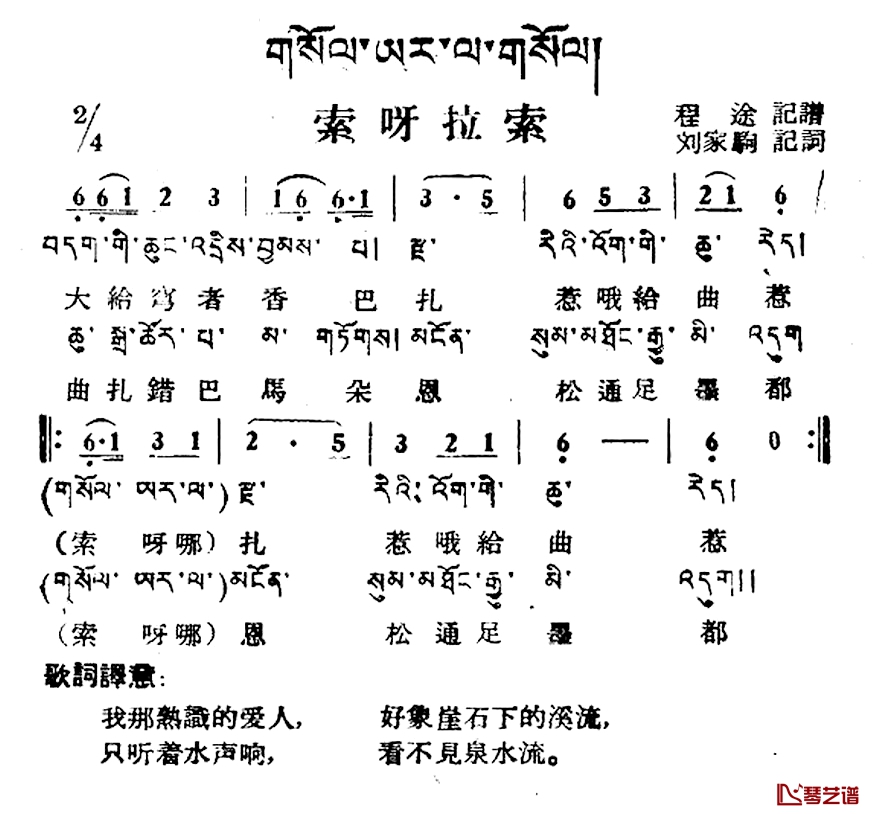 གསོལ་ཨར་ལ་གསོལ།
2/4 索呀拉索 程途 記譜
刘家駒 記詞
6 6 1 2 3 | 1 6 6·1 | 3 · 5 | 6 5 3 | 2 1 6 /
བདག་གི་ཆུང་འདྲིས་བྱམས་ པ། རྫ་ རིའི་འོག་གི་ ཆུ་ རེད།
大給穹者香 巴 扎 惹哦給 曲 惹
ཆུ་ སྒྲ་ཚོར་ པ་ མ་ གཏོགས། མངོན་ སུམ་མ་ཐོང་རྒྱུ་ མི་ འདུག
曲扎錯巴馬 朵 恩 松通足 墨 都
‖: 6·1 3 1 | 2 · 5 | 3 2 1 | 6 — | 6 0 :‖
(གསོལ་ ཨར་ལ་) རྫ་ རིའི་ འོག་གི་ ཆུ་ རེད།
(索 呀哪) 扎 惹 哦給 曲 惹
(གསོལ་ ཨར་ལ་) མངོན་ སུམ་མ་ཐོང་རྒྱུ་ མི་ འདུག།།
(索 呀哪) 恩 松通足 墨 都
歌詞譯意:
我那熟識的爱人, 好象崖石下的溪流,
只听着水声响, 看不見泉水流。
琴艺谱